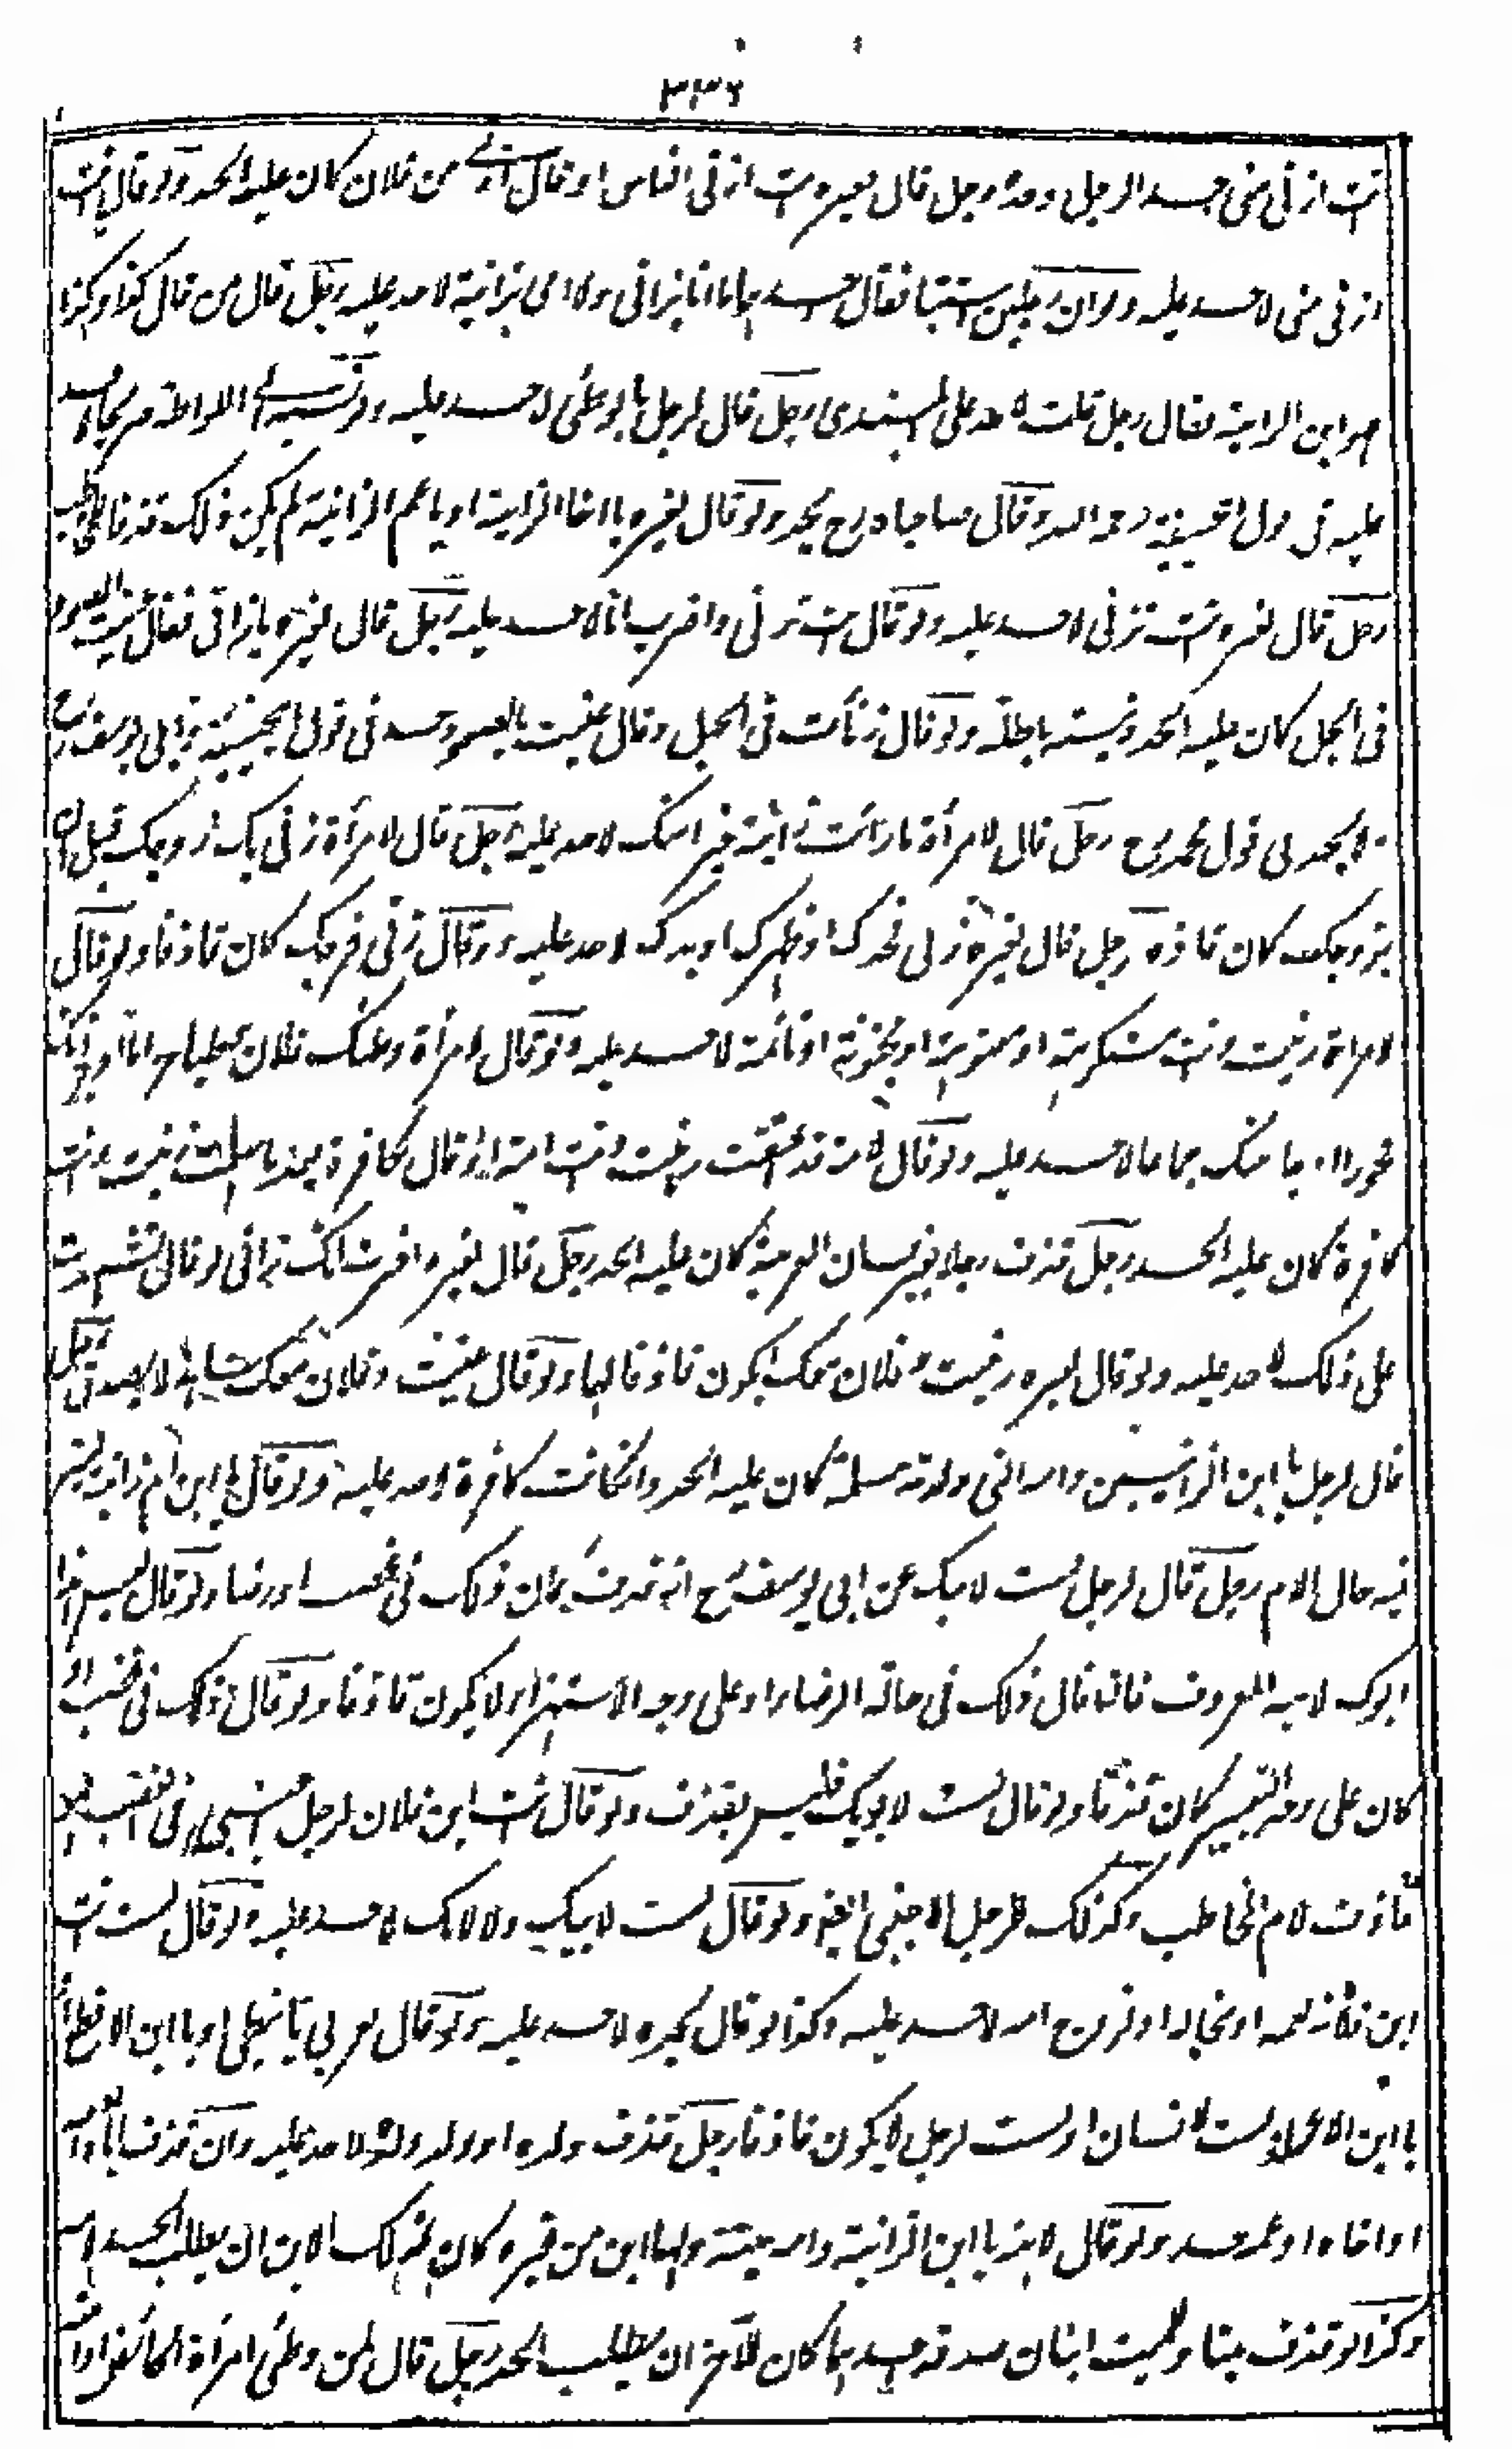 ٣٣٦
انت ازنى منى حد الرجل وحده رجل قال لغيره انت ازنى الناس او قال ازنى من فلان كان عليه الحد ولو قال انت
ازنى منى لا حد عليه ولو ان رجلين استبا فقال احدهما ما انا بزانى ولا امى بزانية لا حد عليه رجل قال من قال كذا وكذا
فهو ابن الزانية فقال رجل قلت لا حد على المبتدى رجل قال لرجل يا لوطى لا حد عليه ولو نسبه الى اللواطة صريحا لا حد
عليه فى قول ابيحنيفة رحمه الله وقال صاحباه رح يحد ولو قال لغيره يا اخا الزانية او يا عم الزانية لم يكن ذلك قذفا
رجل قال لغيره انت تزنى لا حد عليه ولو قال انت تزنى واضرب انا لا حد عليه رجل قال لغيره يا زانى فقال عنيت الصعود
فى الجبل كان عليه الحد ونيته باطلة ولو قال زنأت فى الجبل وقال عنيت به الصعود حد فى قول ابيحنيفة وابى يوسف رح
ولا يحد فى قول محمد رح رجل قال لامرأة ما رأيت زانية خير امنك لا حد عليه رجل قال لامرأة زنى بك زوجك قبل ان
يتزوجك كان قاذفا رجل قال لغيره زنى فخذك او ظهرك او يدك لا حد عليه ولو قال زنى فرجك كان قاذفا ولو قال
لامرأة زنيت وانت مستكرهة او معتوهة او مجنونة او نائمة لا حد عليه ولو قال لامرأة وطئك فلان وطيا حراما او
فجر بك او جامعك جماعا لا حد عليه ولو قال لامة قد عتقت زنيت وانت امة او قال لكافرة بعد ما اسلمت زنيت وانت
كافرة كان عليه الحد رجل قذف رجلا بغير لسان العربية كان عليه الحد رجل قال لغيره اخبرت انك زانى او قال
على ذلك لا حد عليه ولو قال لغيره زنيت وفلان معك يكون قاذفا لهما ولو قال عنيت وفلان معك شاهد لا يصدق رجل
قال لرجل يا ابن الزانيين وامه التى ولدته مسلمة كان عليه الحد وان كانت كافرة لا حد عليه ولو قال يا ابن ام زانية يعتبر
فيه حال الام رجل قال لرجل لست لابيك عن ابى يوسف رح انه قذف كان ذلك فى غضب او رضا ولو قال ليس هذا
ابوك لابيه المعروف فان قال ذلك فى حالة الرضا او على وجه الاستفهام لا يكون قاذفا ولو قال ذلك فى غضب او
كان على وجه التعيير كان قذفا ولو قال لست لابويك فليس بقذف ولو قال انت ابن فلان لرجل اجنبى فى الغضب فهو
قاذف لام المخاطب وكذلك للرجل الاجنبى ايضا ولو قال لست لابيك ولا لامك لا حد عليه ولو قال لست انت
ابن فلان لعمه او لخاله او لزوج امه لا حد عليه وكذا لو قال لجده لا حد عليه ولو قال لعربى يا نبطى او يا ابن الاقطع او
يا ابن الاعور او لست لانسان او لست لرجل لا يكون قاذفا رجل قذف ولده او ولد ولده لا حد عليه وان قذف اباه او امه
او اخاه او عمه حد ولو قال لابنه يا ابن الزانية وامه ميتة ولها ابن من غيره كان لذلك الابن ان يطلب الحد
وكذا لو قذف ميتا وللميت ابنان صدقه احدهما كان للآخر ان يطلب الحد رجل قال لمن وطئ امرأة الحائض او امة